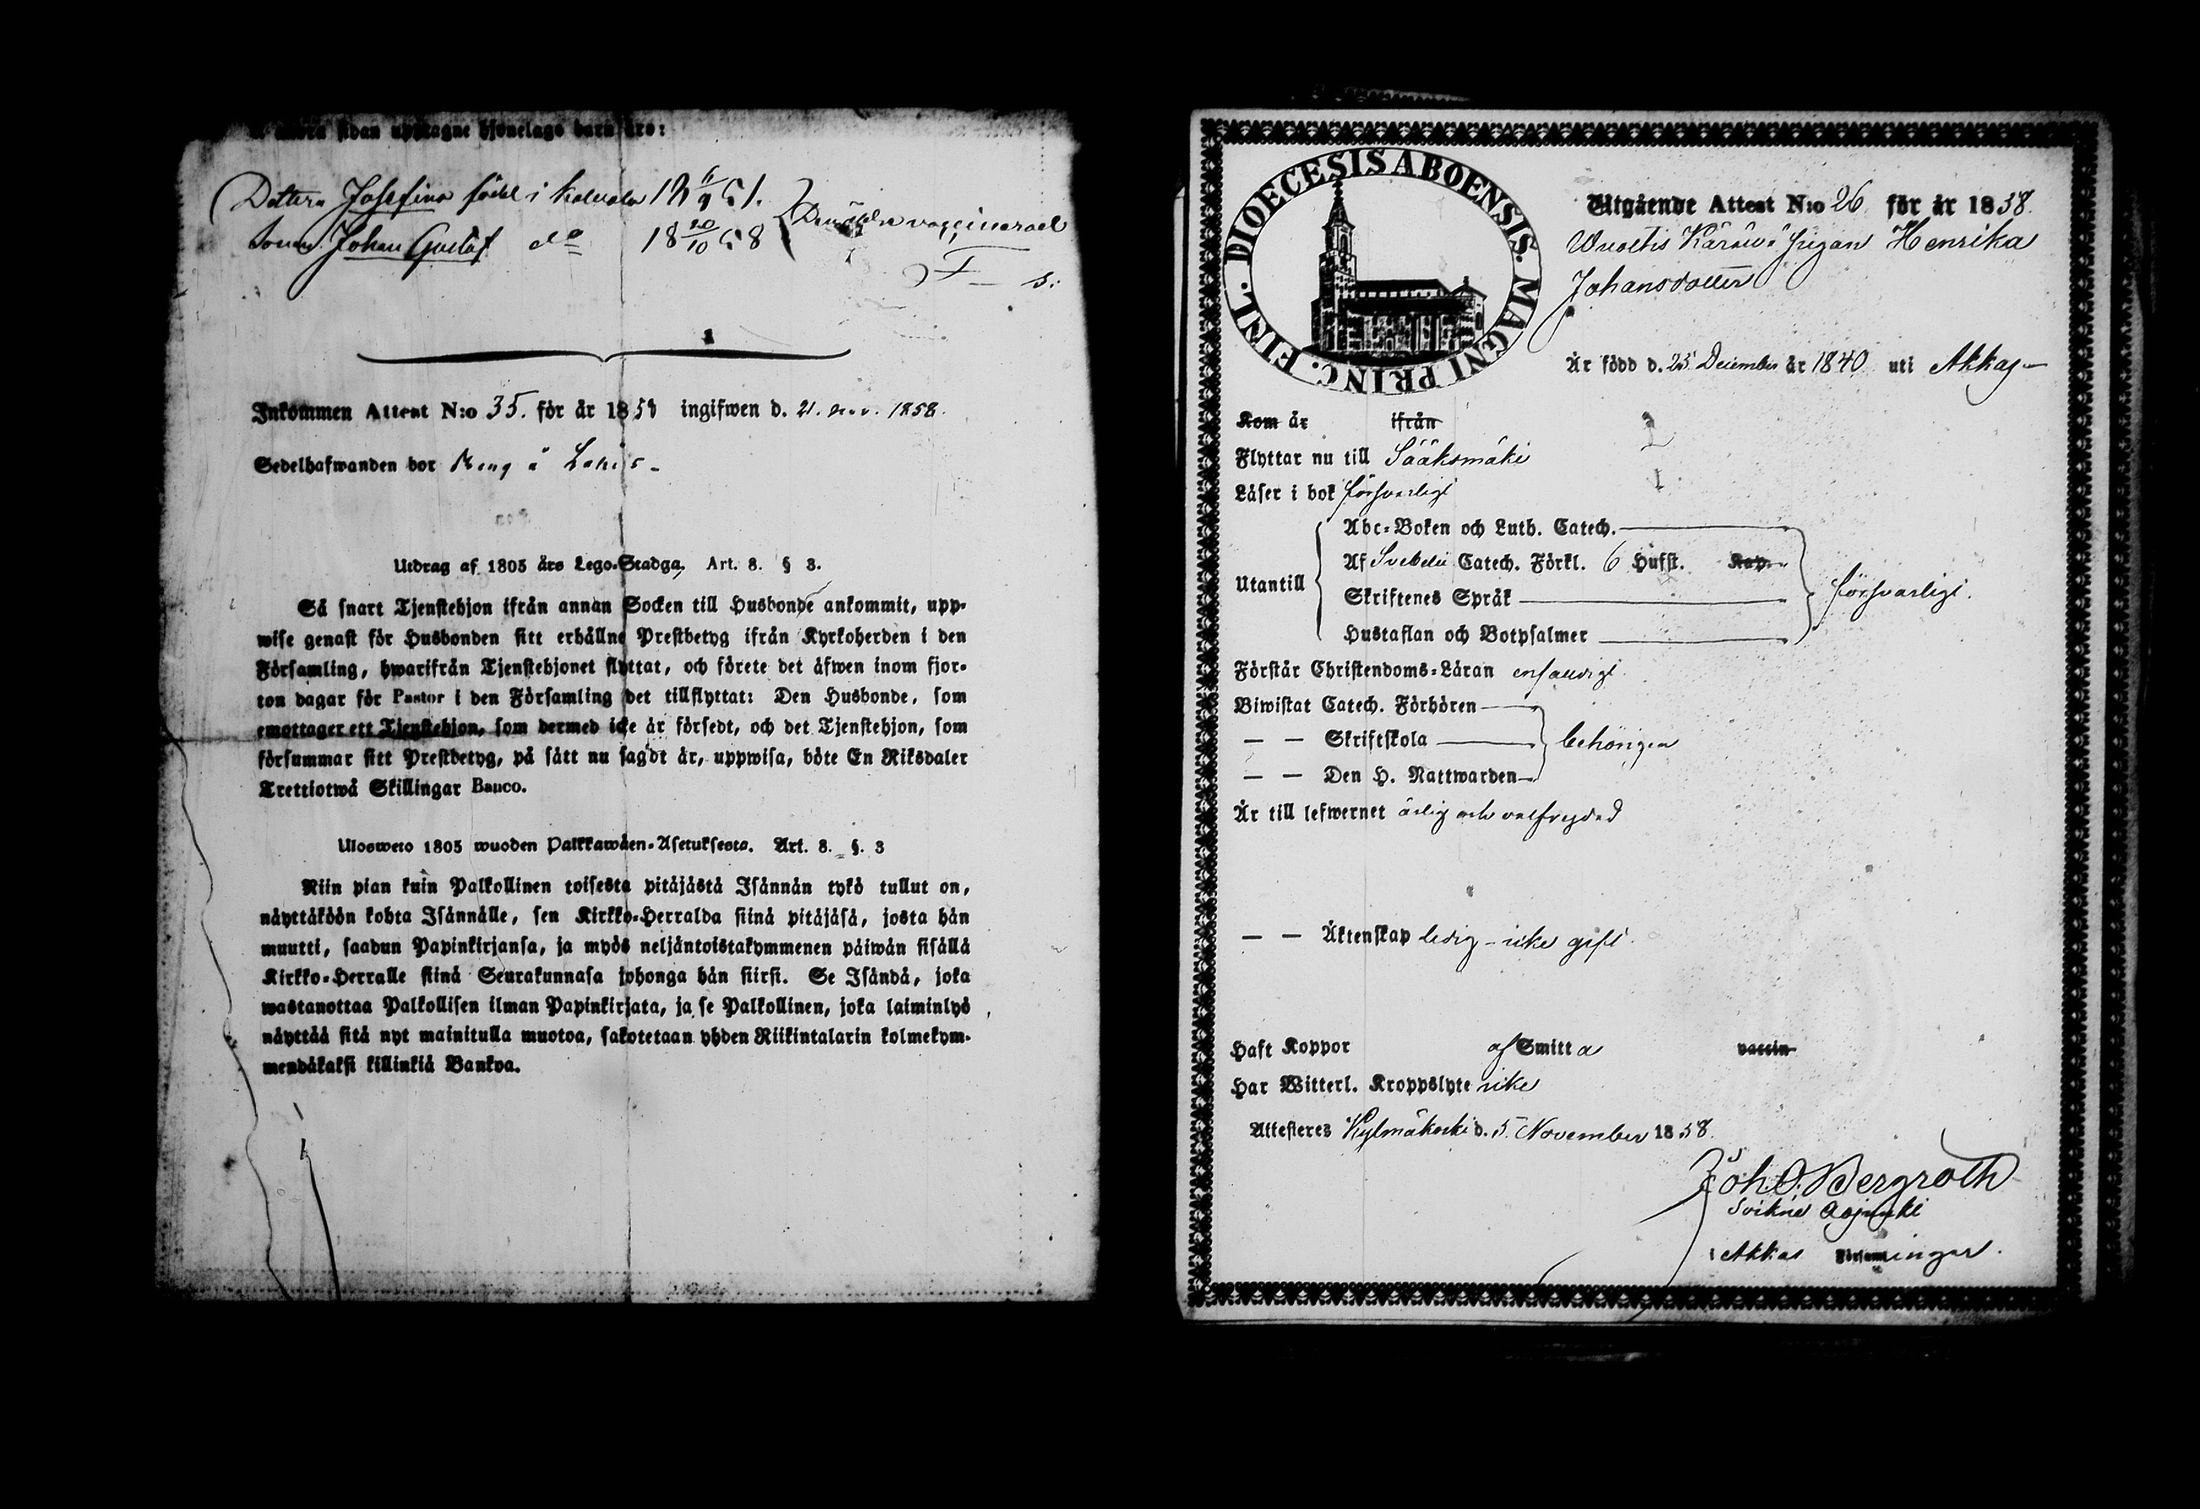 sidan upptagne hjonelags barn äro:
Dottern Josefina född i Kalvola 18 6/9 51.
Sonen Johan Gustaf do 18 20/10 58
Den äldre vaccinerad
Inkommen Attest N:o 35. för år 1858 ingifwen d. 21. nov. 1858.
Sedelhafwanden bor
Utdrag af 1805 års Lego-Stadga, Art. 8. § 3.
Så snart Tjenstehjon ifrån annan Socken till Husbonde ankommit, upp-
wise genast för Husbonden sitt erhållne Prestbetyg ifrån Kyrkoherden i den
Församling, hwarifrån Tjenstehjonet flyttat, och förete det äfwen inom fjor-
ton dagar för Pastor i den Församling det tillflyttat: Den Husbonde, som
emottager ett Tjenstehjon, som dermed icke är försedt, och det Tjenstehjon, som
försummar sitt Prestbetyg, på sätt nu sagdt är, uppwisa, böte En Riksdaler
Trettiotwå Skillingar Banco.
Ulosweto 1805 wuoden Palkkawäen-Asetuksesta. Art. 8. §. 3
Niin pian kuin Palkollinen toisesta pitäjästä Isännän tykö tullut on,
näyttäköön kohta Isännälle, sen Kirkko-Herralda siinä pitäjäsä, josta hän
muutti, saadun Papinkirjansa, ja myös neljäntoistakymmenen päiwän sisällä
Kirkko-Herralle siinä Seurakunnasa johonga hän siirsi. Se Isändä, joka
wastanottaa Palkollisen ilman Papinkirjata, ja se Palkollinen, joka laiminlyö
näyttää sitä nyt mainitulla muotoa, sakotetaan yhden Riikintalarin kolmekym-
mendäkaksi killinkiä Bankoa.
DIOECESIS ABOENSIS. MAGNI PRINC. FINL.
Utgående Attest N:o 26 för år 1858.
Pigan Henrika
Johansdotter
Är född d. 25 December år 1840 uti Akkas
Kom år ifrån
Flyttar nu till Sääksmäki
Läser i bok försvarligt
Utantill
Abc-Boken och Luth. Catech.
Af Svebelii Catech. Förkl. 6 Hufst. Kap.
Skriftenes Språk
Hustaflan och Botpsalmer
försvarligt.
Förstår Christendoms-Läran enfaldigt
Biwistat Catech. Förhören
— — Skriftskola
— — Den H. Nattwarden
behörigen
Är till lefwernet ärlig och välfrejdad
— — Äktenskap ledig – icke gift.
Haft Koppor af Smitta vaccin
Har Witterl. Kroppslyte icke
Attesteras Kylmäkoski d. 5 November 1858.
Joh. O. Bergroth
i Akkas Församlingar.